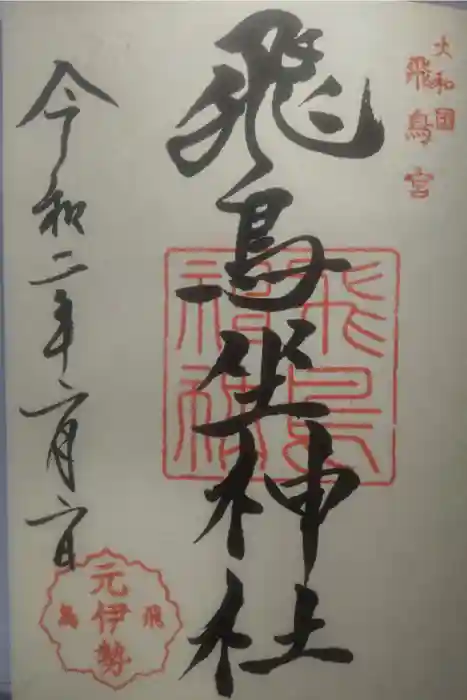 大和國
飛鳥宮
飛鳥坐神社
令和二年六月六日
元伊勢
飛鳥